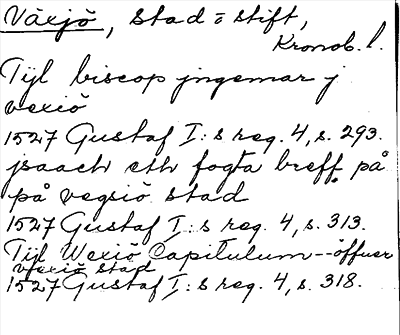 Växjö, stad o stift,
Kronob. l.
Tijl biscop jngemar j
vexiö
1527 Gustaf I:s reg. 4, s. 293.
jsaach eth fogta breff på
på vegsiö stad
1527 Gustaf I:s reg. 4, s. 313.
Tijl Wexiö Capitulum -- öffuer
vexiö stad
1527 Gustaf I:s reg. 4, s. 318.